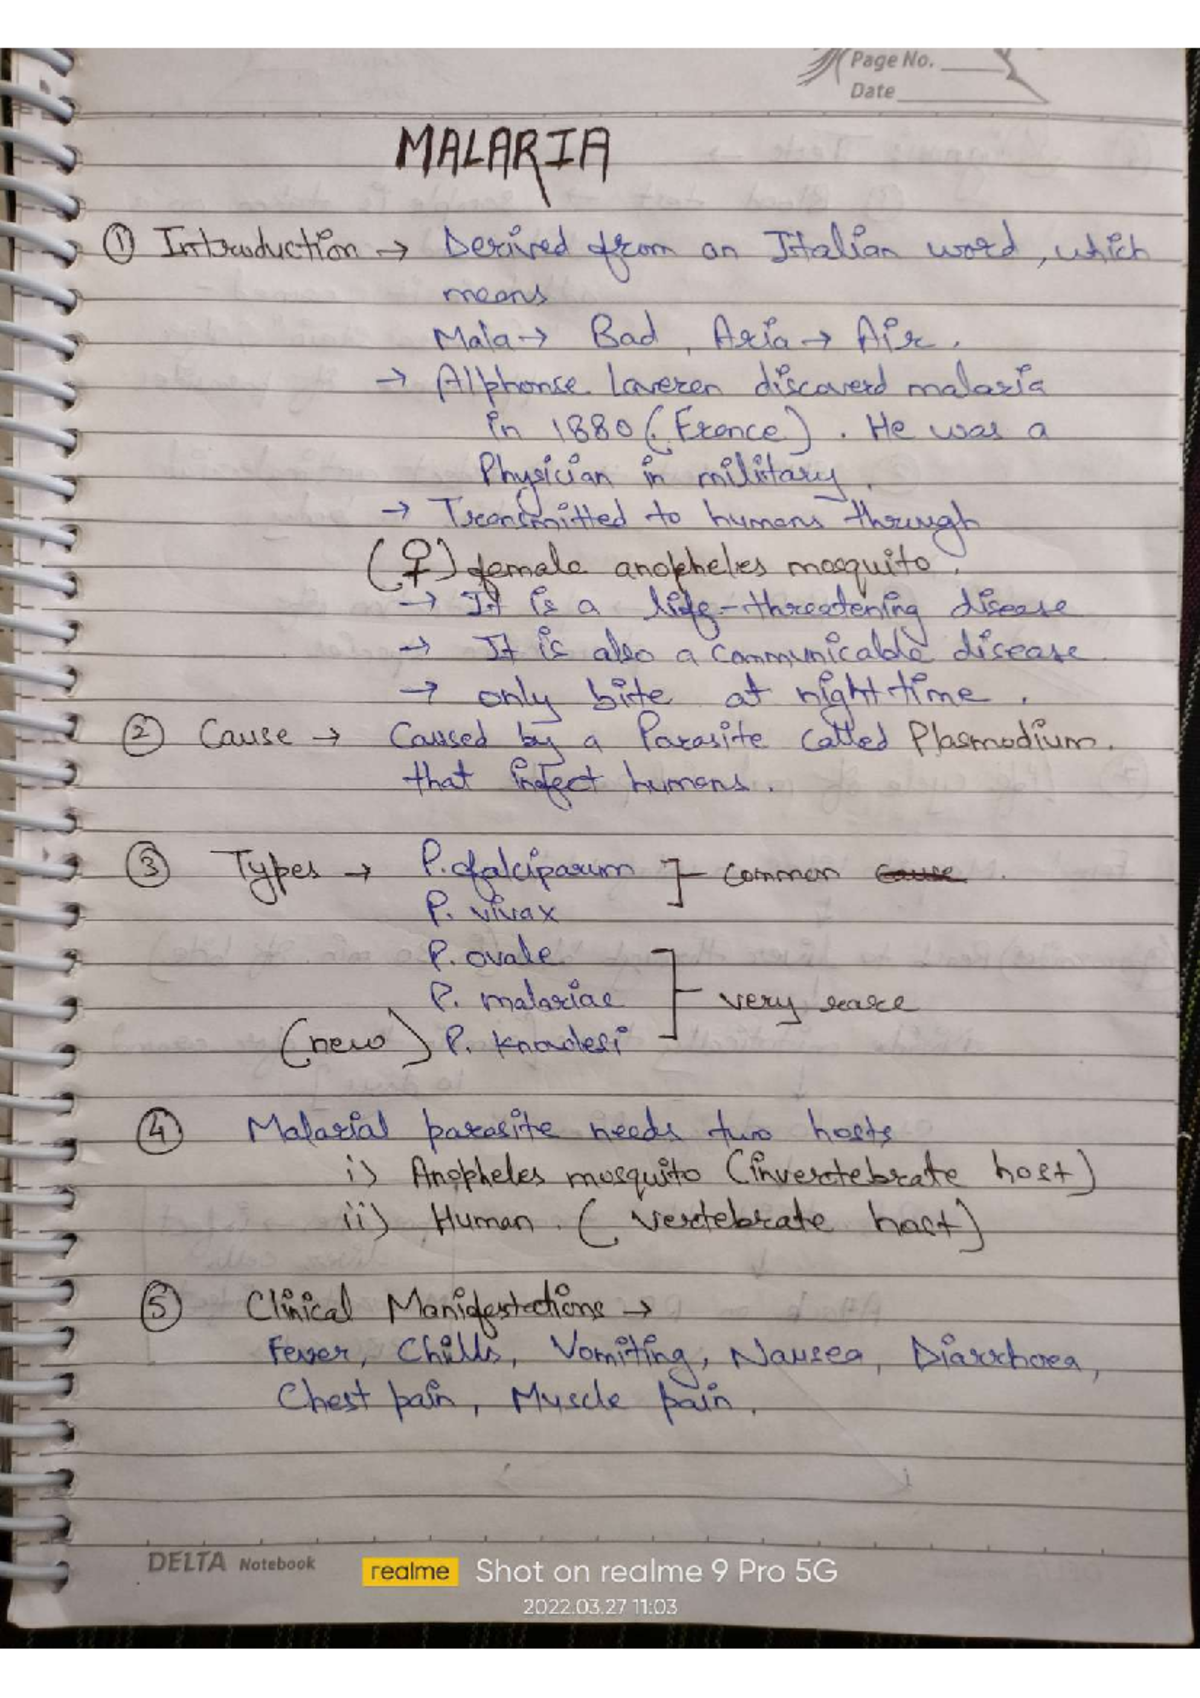 Page No.
Date
MALARIA
① Introduction → Derived from an Italian word, which
means
Mala → Bad, Aria → Air.
→ Alphonse Laveren discoverd malaria
in 1880 (France). He was a
Physician in military.
→ Transmitted to humans through
(♀) female anopheles mosquito.
→ It is a life-threatening disease
→ It is also a communicable disease
→ only bite at night time.
② Cause → Caused by a Parasite called Plasmodium.
that infect humans.
③ Types → P. falciparum ]- common cause.
P. vivax
P. ovale
P. malariae ]- very rare
(new) P. knowlesi
④ Malarial parasite needs two hosts
i) Anopheles mosquito (invertebrate host)
ii) Human. (vertebrate host)
⑤ Clinical Manifestations →
Fever, Chills, Vomiting, Nausea, Diarrhoea,
Chest pain, Muscle pain.
DELTA Notebook
realme Shot on realme 9 Pro 5G
2022.03.27 11:03